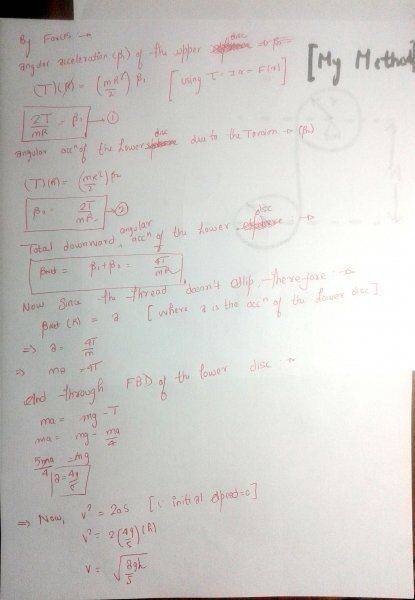 By Forces →
angular acceleration (β₁) of the upper disc
[My Method]
(T)(R) = (mR²/2) β₁ [using τ = Iα = F(r)]
2T/mR = β₁ → ①
angular accⁿ of the lower disc due to the Tension → (β₂)
(T)(R) = (mR²/2) β₂
β₂ = 2T/mR → ②
Total downward angular accⁿ of the lower disc →
βnet = β₁ + β₂ = 4T/mR
Now since the thread doesn't slip, therefore →
βnet (R) = a [where a is the accⁿ of the lower disc]
⇒ a = 4T/m
⇒ ma = 4T
And through FBD of the lower disc →
ma = mg - T
ma = mg - ma/4
5ma/4 = mg
a = 4g/5
⇒ Now, v² = 2as [∵ initial speed = 0]
v² = 2(4g/5)(h)
v = √(8gh/5)